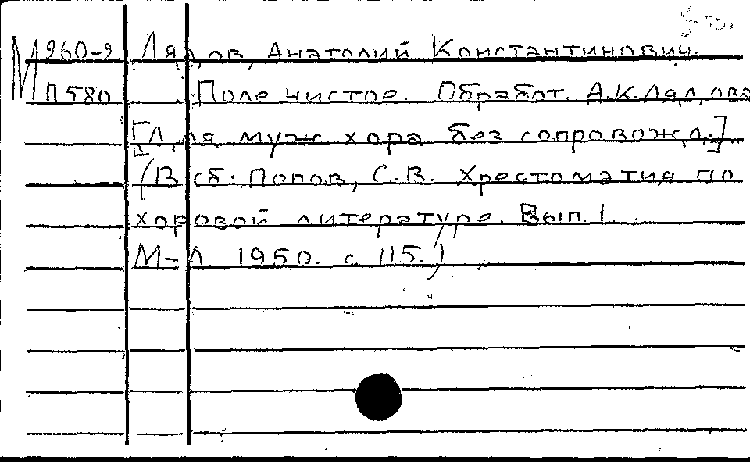 М 960-9 Лядов, Анатолий Константинович.
П580 Поле чистое. Обработ. А.К.Лядова
[Для муж хора без сопровожд.]
(В сб. Попов, С.В. Хрестоматия по
хоровой литературе. Вып. 1
М-Л 1950. с 115.)